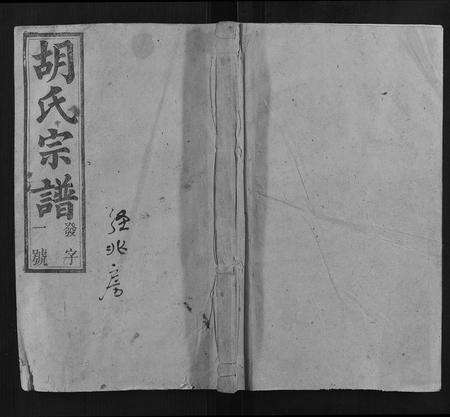 胡氏宗譜
發字
一號
經兆房